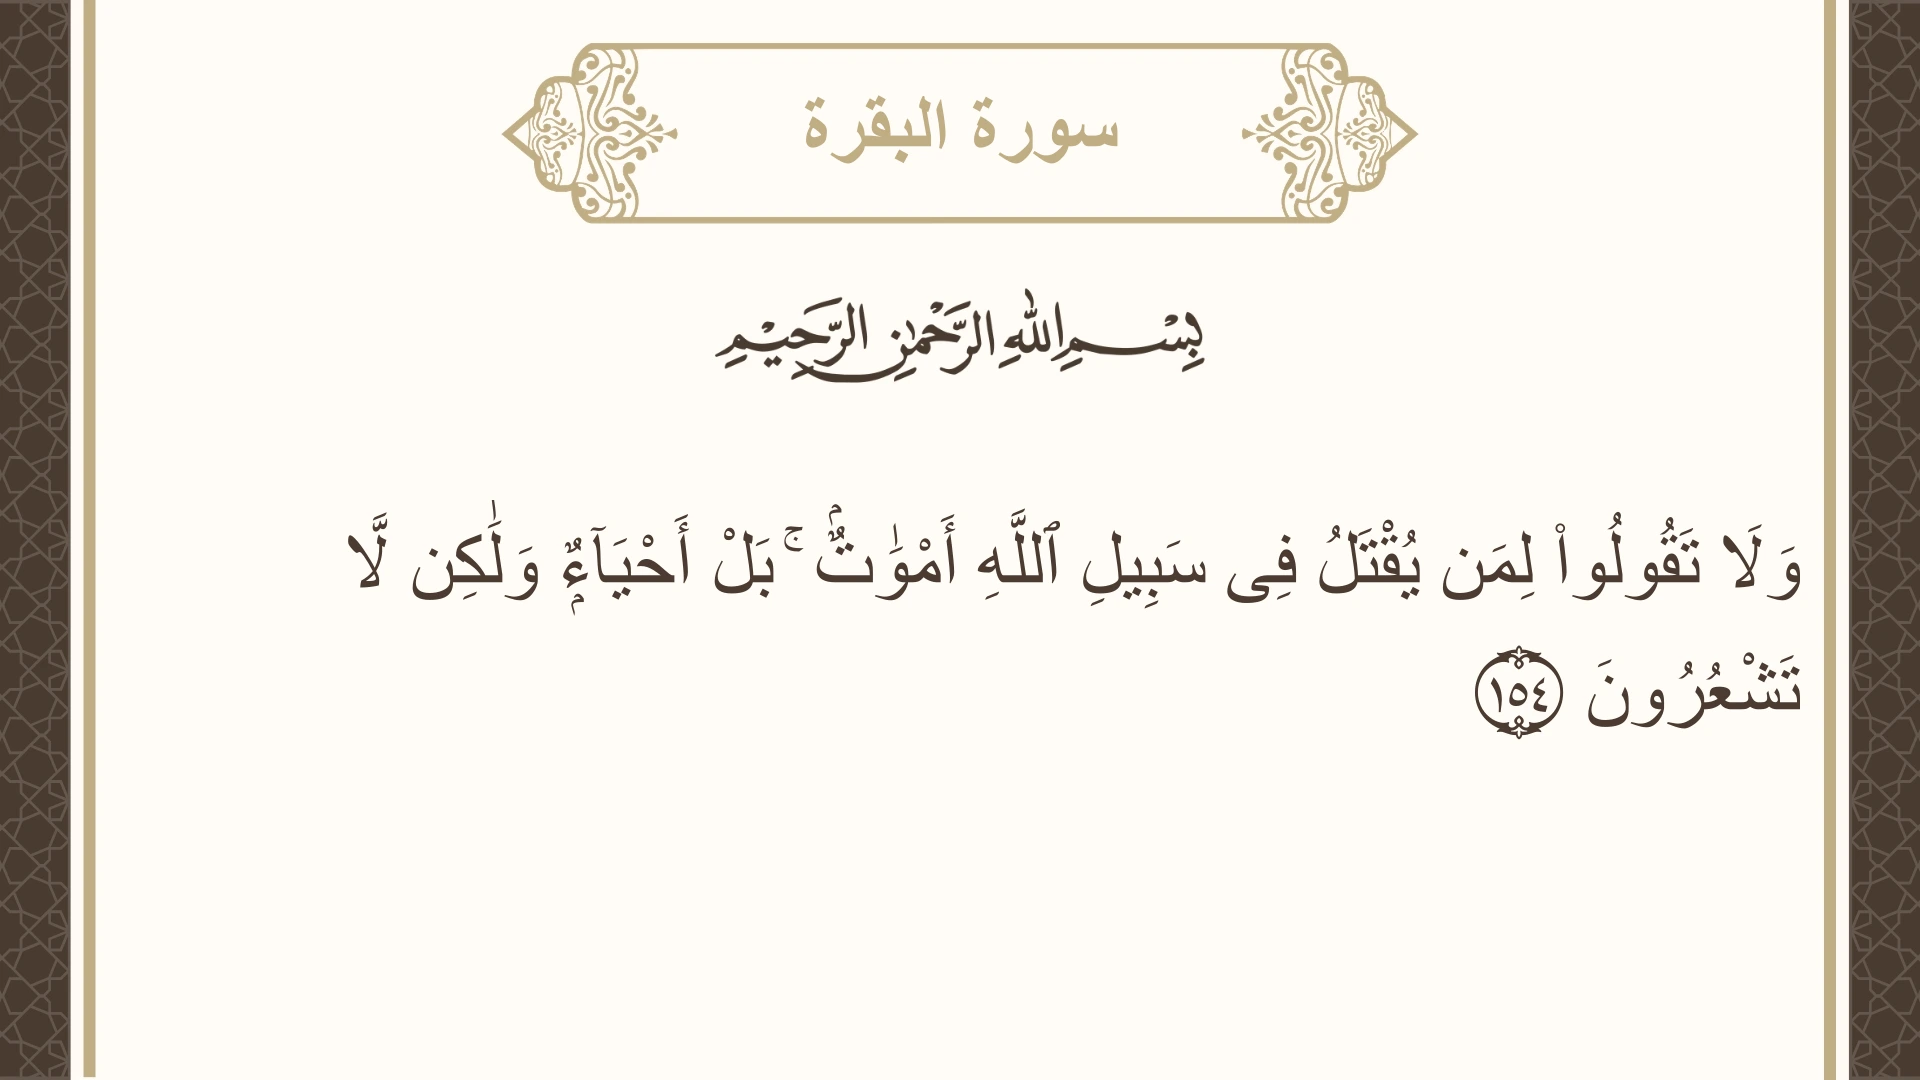 سورة البقرة
بِسْمِ اللهِ الرَّحْمٰنِ الرَّحِيْمِ
وَلَا تَقُولُوا۟ لِمَن يُقْتَلُ فِى سَبِيلِ ٱللَّهِ أَمْوَٰتٌۢ ۚ بَلْ أَحْيَآءٌۭ وَلَٰكِن لَّا
تَشْعُرُونَ ١٥٤